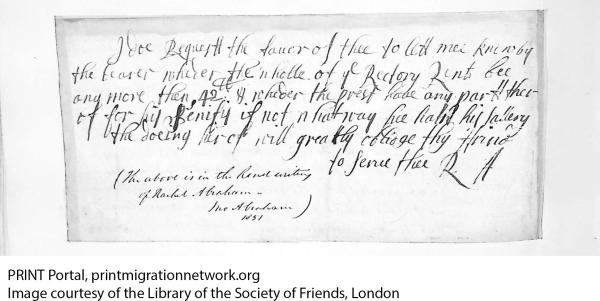 I doe Request the favor of thee to lett mee know by
the bearer whether the wholle of ye Rectory Rents bee
any more then 42ll & whether the prest have any part ther
of for his Benifit if not what way hee hath his sallery
the doeing herof will greatly obliege thy friend
to serve thee R A
(The above is in the Hand writing
of Rachel Abraham –
Jno Abraham)
1851
PRINT Portal, printmigrationnetwork.org
Image courtesy of the Library of the Society of Friends, London